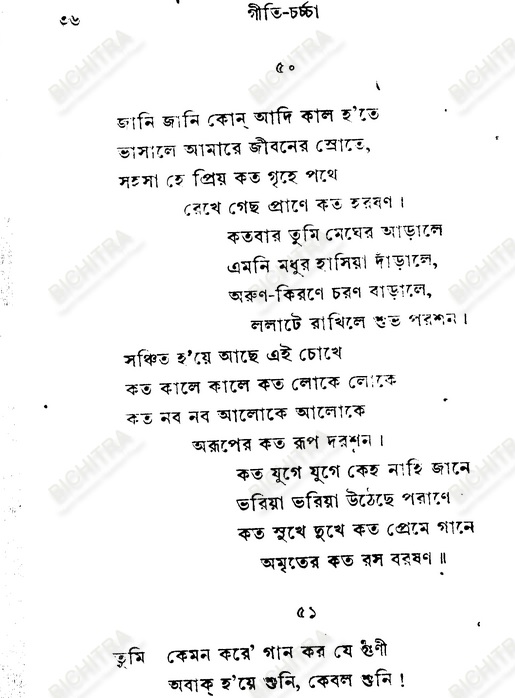 ৩৬
গীতি-চর্চ্চা
৫০
জানি জানি কোন্ আদি কাল হ'তে
ভাসালে আমারে জীবনের স্রোতে,
সহসা হে প্রিয় কত গৃহে পথে
রেখে গেছ প্রাণে কত হরষণ।
কতবার তুমি মেঘের আড়ালে
এমনি মধুর হাসিয়া দাঁড়ালে,
অরুণ-কিরণে চরণ বাড়ালে,
ললাটে রাখিলে শুভ পরশন।
সঞ্চিত হ'য়ে আছে এই চোখে
কত কালে কালে কত লোকে লোকে
কত নব নব আলোকে আলোকে
অরূপের কত রূপ দরশন।
কত যুগে যুগে কেহ নাহি জানে
ভরিয়া ভরিয়া উঠেছে পরাণে
কত সুখে দুখে কত প্রেমে গানে
অমৃতের কত রস বরষণ॥
৫১
তুমি কেমন করে' গান কর যে গুণী
অবাক্ হ'য়ে শুনি, কেবল শুনি!
BICHITRA